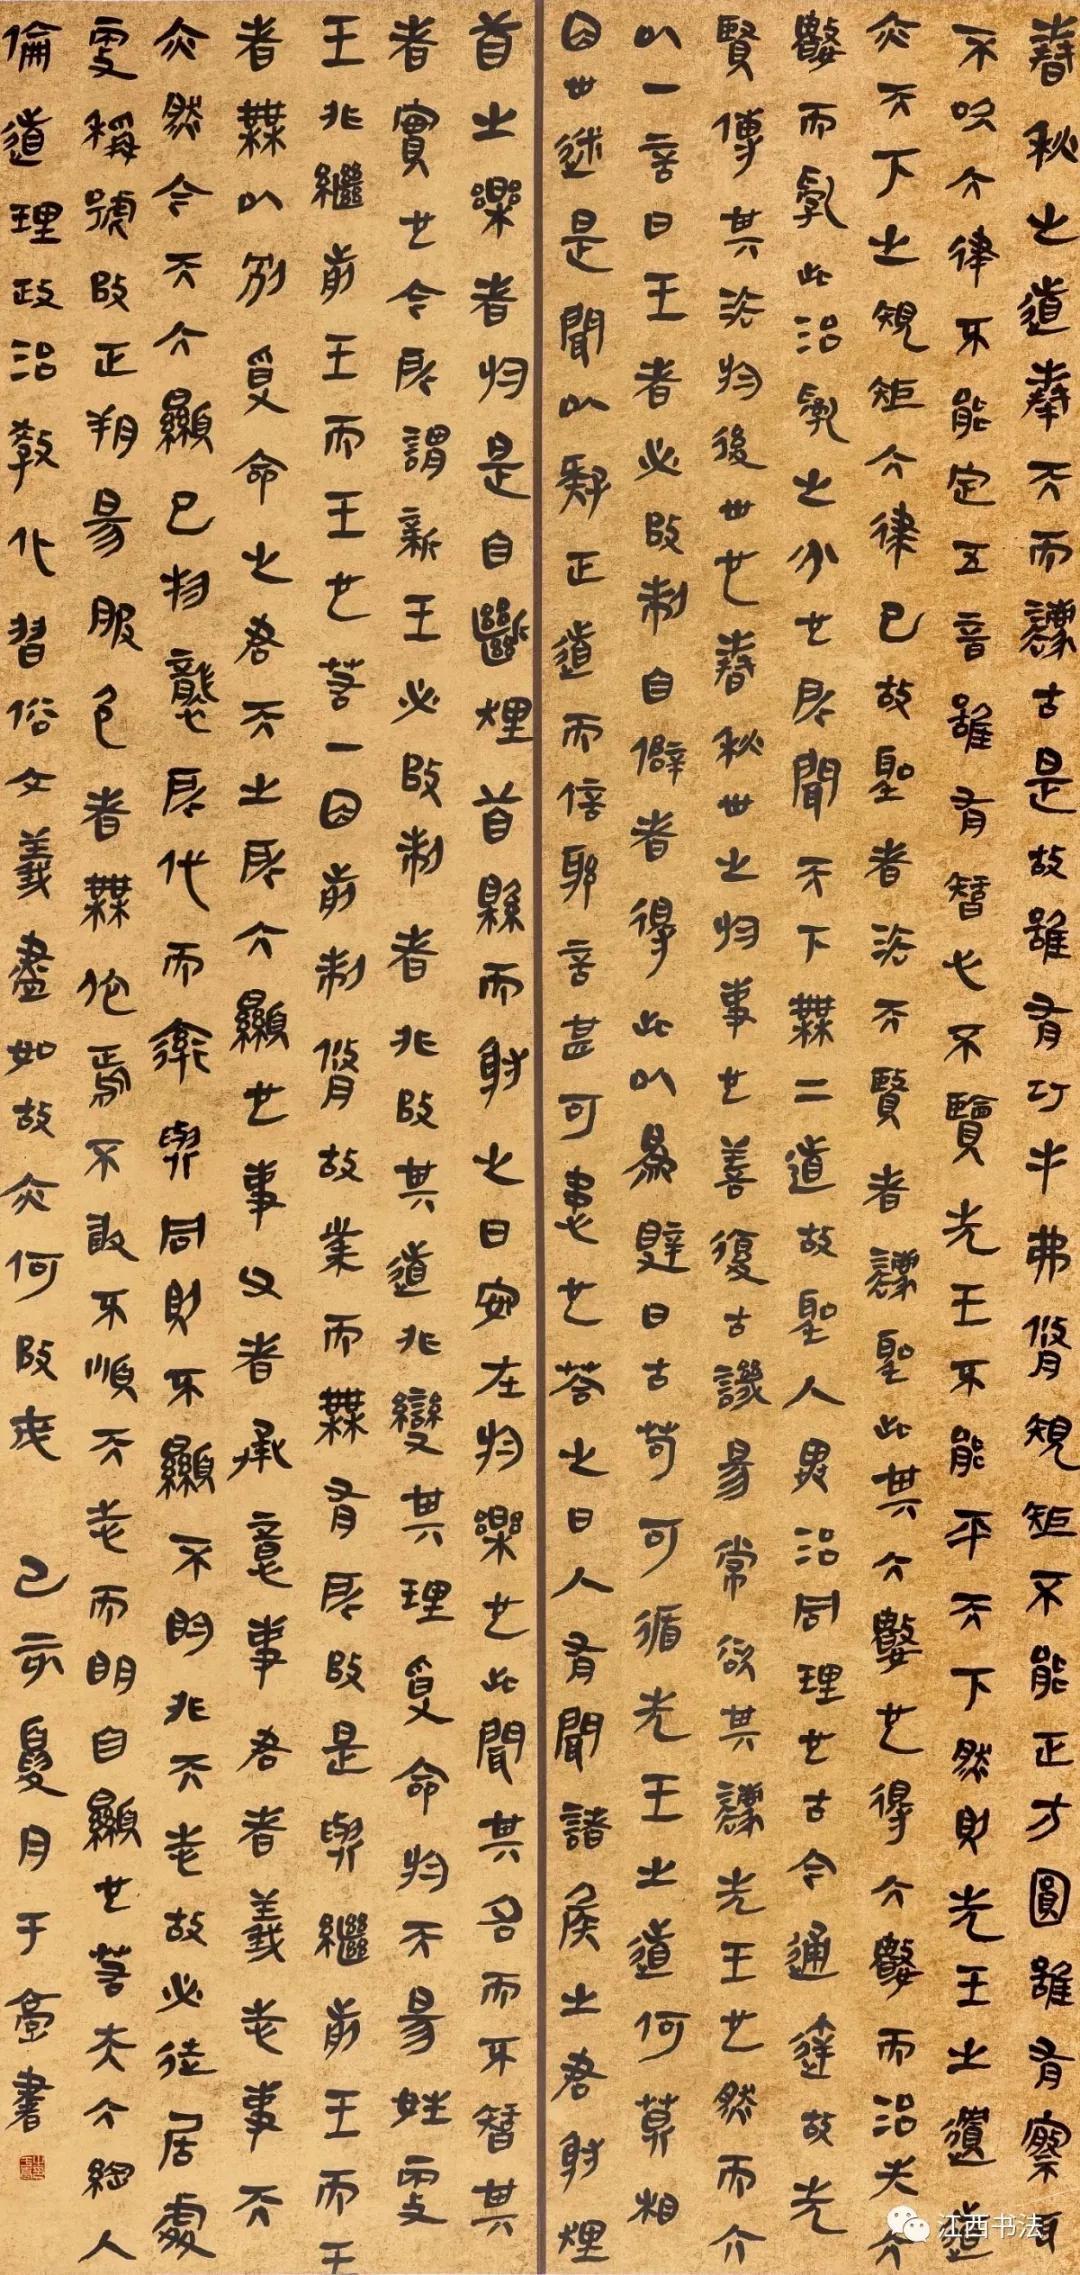 春秋之道奉天而法古是故雖有巧手弗脩規矩不能正方圓雖有察耳
不吹六律不能定五音雖有智心不覽先王不能平天下然則先王之遺道
亦天下之規矩六律已故聖者法天賢者法聖此其大數也得大數而治失大
數而亂此治亂之分也所聞天下無二道故聖人異治同理也古今通達故先
賢傳其法於後世也春秋世之於事也善復古譏易常欲其法先王也然而介
以一言曰王者必改制自僻者得此以為辟曰古苟可循先王之道何莫相
因世迷是聞以疑正道而信邪言甚可患也答之曰人有聞諸侯之君射貍
首之樂者於是自斷貍首縣而射之曰安在於樂也此聞其名而不智其
者實也今所謂新王必改制者非改其道非變其理受命於天易姓更
王非繼前王而王也若一因前制脩故業而無有所改是與繼前王而王
者無以別受命之君天之所大顯也事父者承意事君者義志事天
亦然今天大顯已物襲所代而率與同則不顯不明非天志故必徙居處
更稱號改正朔易服色者無他焉不敢不順天志而明自顯也若夫大綱人
倫道理政治教化習俗文義盡如故亦何改哉 己亥夏月于書
江西书法